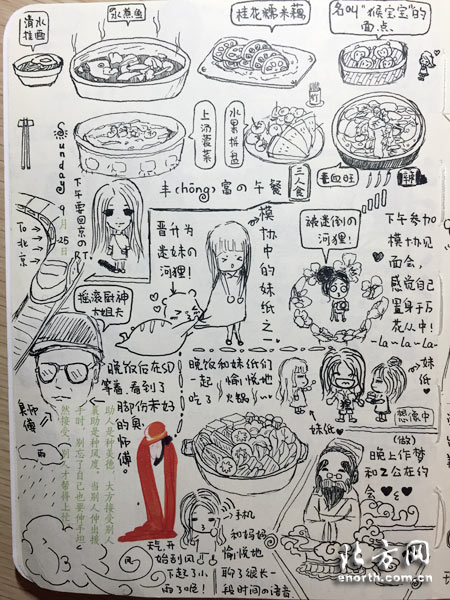 清水
挂面
水煮鱼
桂花糯米藕
名叫"猴宝宝"的
面点
上汤菠菜
水果拼盘
三人食
毛血旺
丰(chōng)富的午餐
Sunday
9
月
25
To
北京
下午要回京的
晋升为
迷妹の
河狸!
模协中的妹纸之一
被迷倒的
河狸!
下午参加
模协见
面会,
感觉自己
置身于万
花丛中!
~la~la~la~
摇滚厨神
大姐夫
臭师傅
晚饭后在SD
等着,看到了
脚伤未好
的臭
师傅。
晚饭和妹纸们
一起愉愉地
吃了火锅~~
妹纸
妹纸
想像中
(做)
晚上作梦
和Z公在约
会
助人是种美德,大方接受别人
帮助是种风度。当别人伸出援
手时,别忘了自己也要伸手坦
然接受,
雨
风
手机
天气开
始刮风
下起了小
雨了呢!
和妈妈
愉愉地
聊了很长一
段时间の语音
北方网
enorth.com.cn